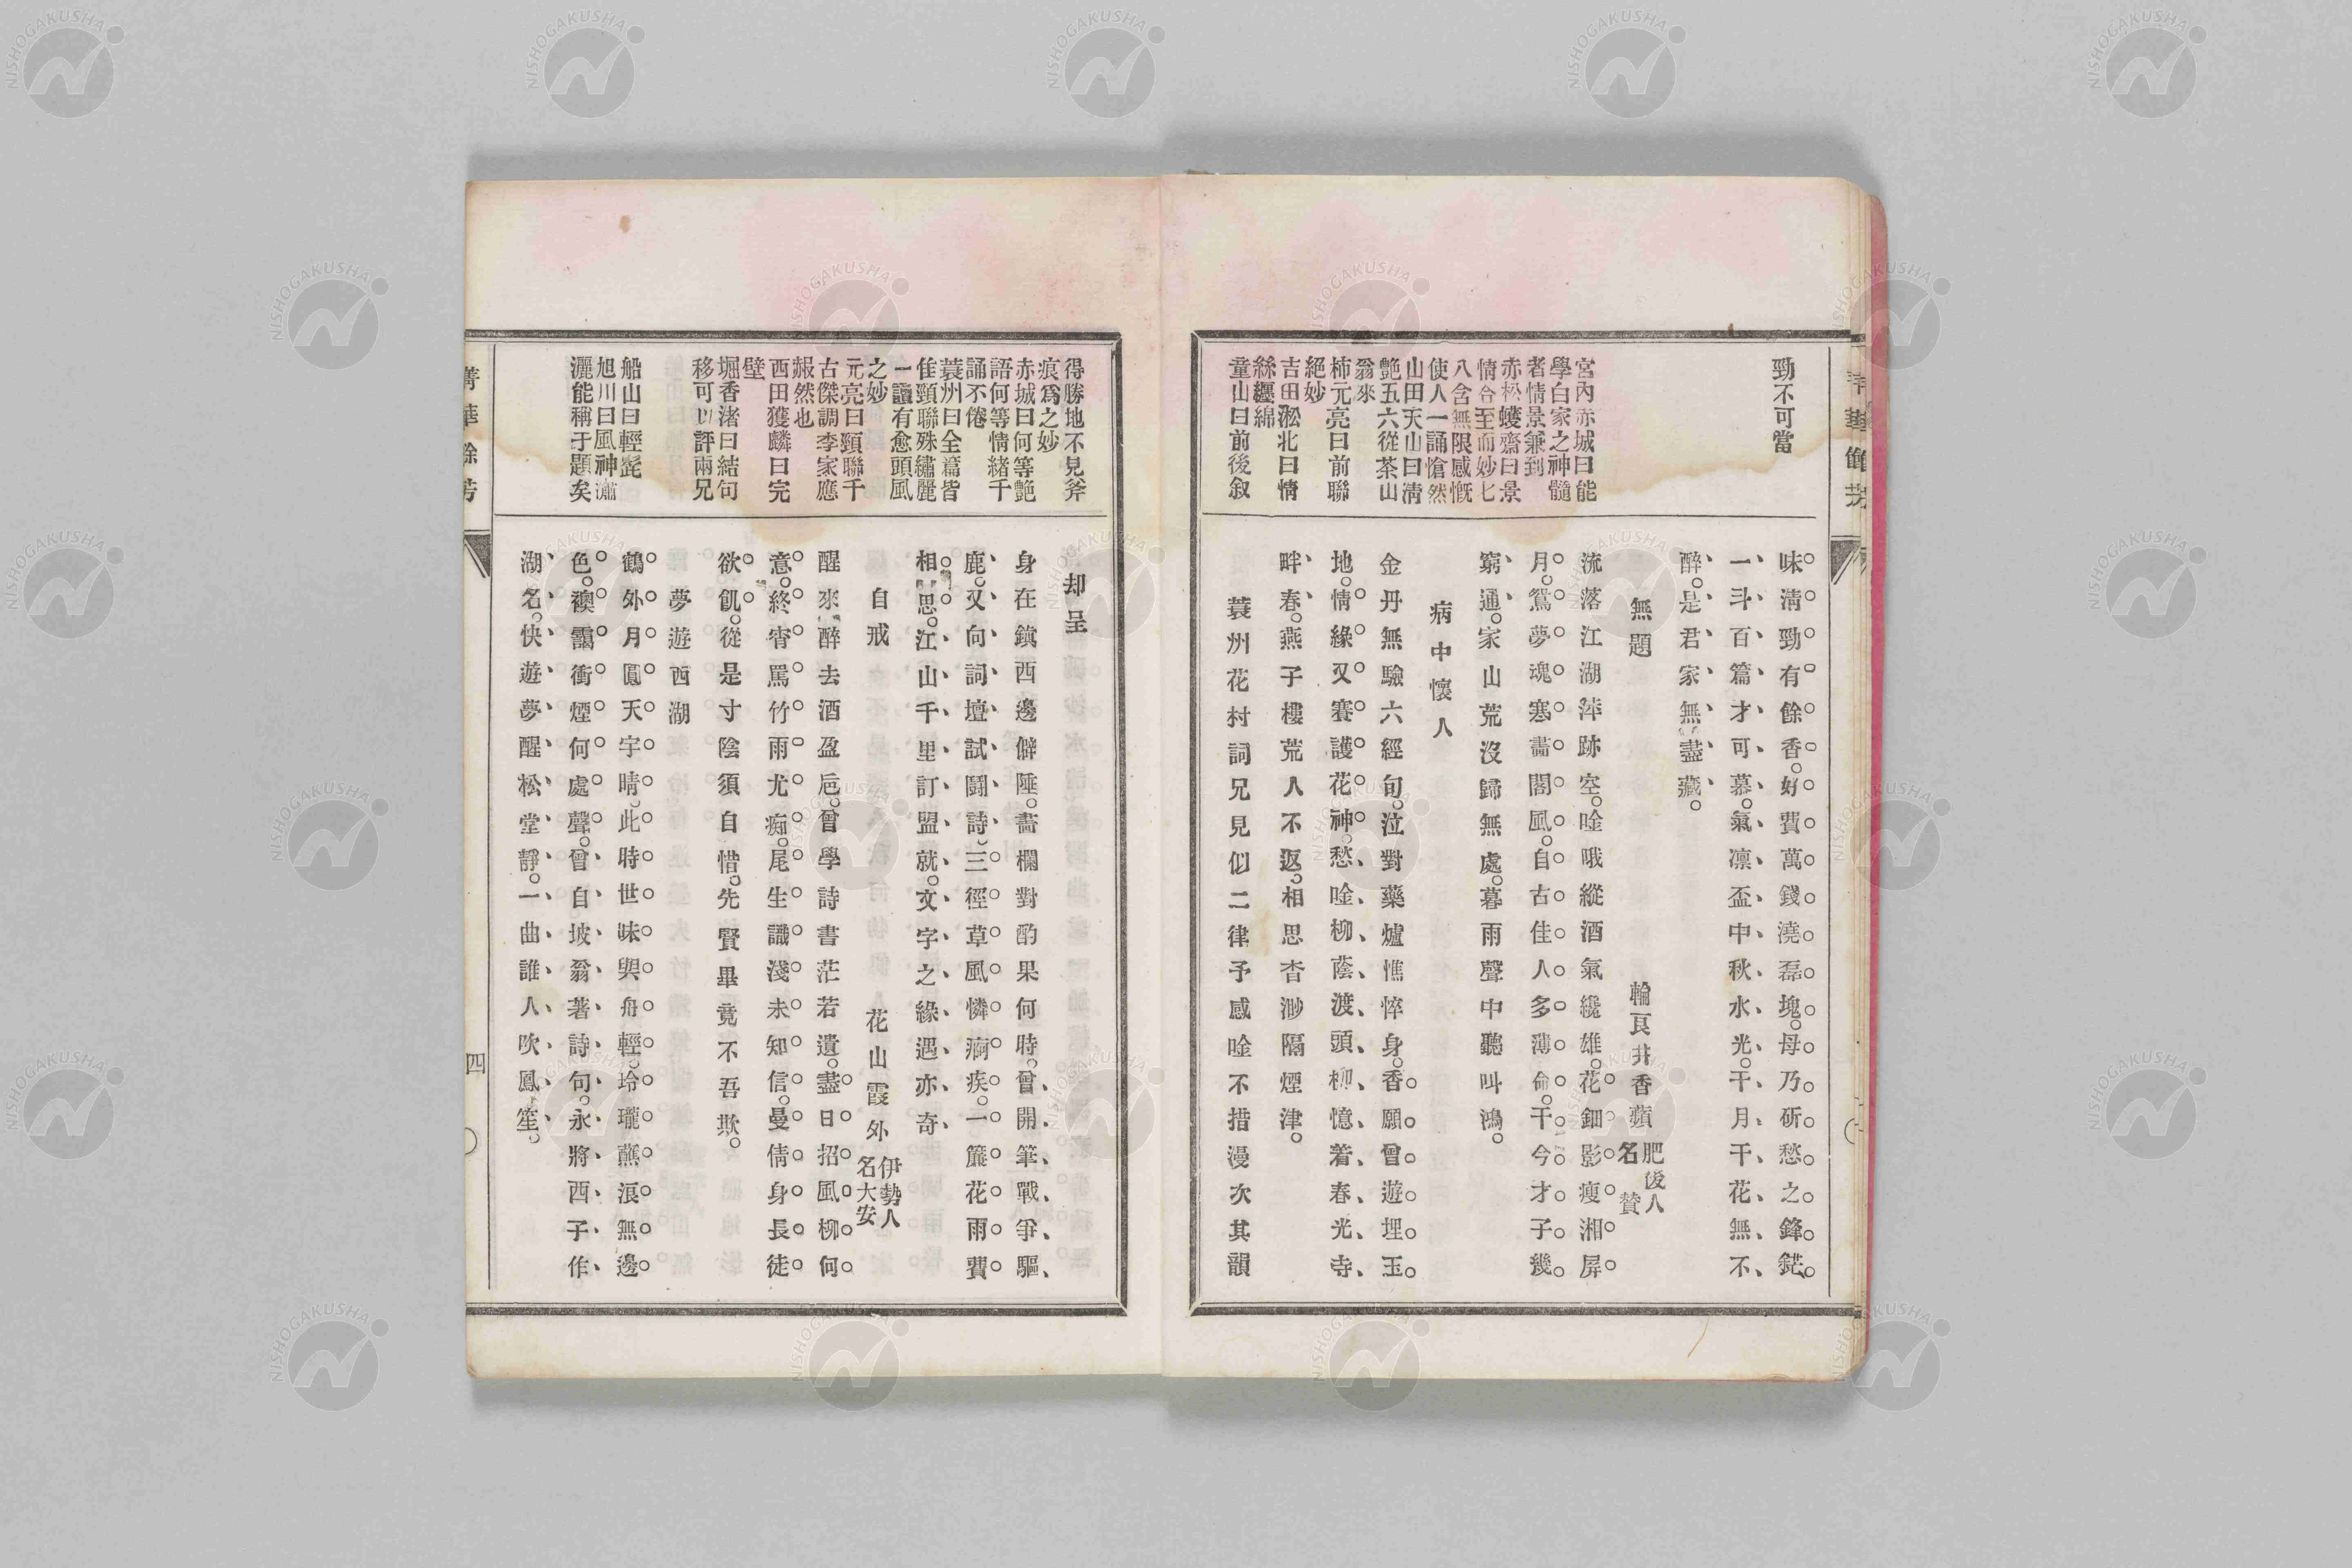 勁不可當
宮內赤城曰能
學白家之神髓
者情景兼到
赤松蠖齋曰景
情合至而妙七
八含無限感慨
使人一誦愴然
山田天山曰淸
艷五六從茶山
翁來
柿元亮曰前聯
絕妙
吉田淞北曰情
絲纒綿
童山曰前後敘
味淸勁有餘香。好費萬錢澆磊塊。毋乃斫愁之鋒鋩。
一斗百篇才可慕。氣凛盃中秋水光。干月干花無不
醉。是君家無盡藏。
無題 輪㒵井香蘋 肥後人名賛
流落江湖萍跡空。唫哦縱酒氣纔雄。花鈿影瘦湘屏
月。鴛夢魂寒畵閣風。自古佳人多薄命。于今才子幾
窮通。家山荒沒歸無處。暮雨聲中聽叫鴻。
病中懷人
金丹無驗六經旬。泣對藥爐憔悴身。香願曾遊埋玉
地。情緣又賽護花神。愁唫柳蔭渡頭柳。憶着春光寺
畔春。燕子樓荒人不返。相思杳渺隔煙津。
蓑州花村詞兄見似二律予感唫不措漫次其韻
得勝地不見斧
痕爲之妙
赤城曰何等艶
語何等情緖千
誦不倦
蓑州曰全篇皆
隹頸聯殊繡麗
一讀有愈頭風
之妙
元亮曰頸聯千
古傑調李家應
赧然也
西田獲麟曰完
壁
堀香渚曰結句
移可以評兩兄
船山曰輕毿
旭川曰風神瀟
灑能稱于題矣
却呈
身在鎭西邊僻陲。畵欄對酌果何時。曾開筆戰爭驅
鹿。又向詞壇試鬪詩。三徑草風憐痼疾。一簾花雨費
相思。江山千里訂盟就。文字之緣遇亦奇
自戒 花山霞外 伊勢人名大安
醒來醉去酒盈巵。曾學詩書茫若遺。盡日招風柳何
意。終宵罵竹雨尤痴。尾生識淺未知信。曼倩身長徒
欲飢。從是寸陰須自惜。先賢畢竟不吾欺。
夢遊西湖
鶴外月圓天宇晴。此時世味與舟輕。玲瓏蘸浪無邊
色。襖靄衝煙何處聲。曾自坡翁著詩句。永將西子作
湖名。快遊夢醒松堂靜。一曲誰人吹鳳笙。
菁華餘芳
四